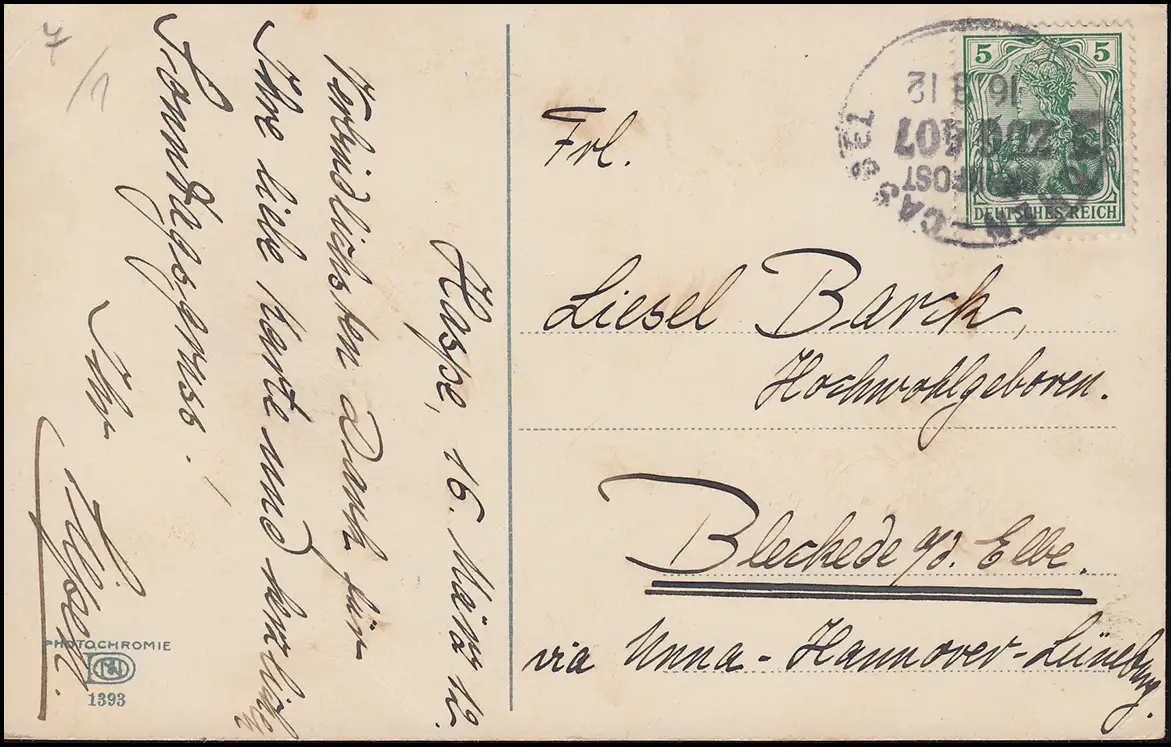 7/1
Haspe, 16. März 12.
Verbindlichsten Dank für
Ihre liebe Karte und
Sonntagsgruss!
Ihr
PHOTOCHROMIE
1393
5 5
DEUTSCHES REICH
CASSEL
BAHNPOST
ZUG 407
16 3 12
Frl.
Liesel Barck,
Hochwohlgeboren.
Bleckede a/d. Elbe.
via Unna - Hannover - Lüneburg.